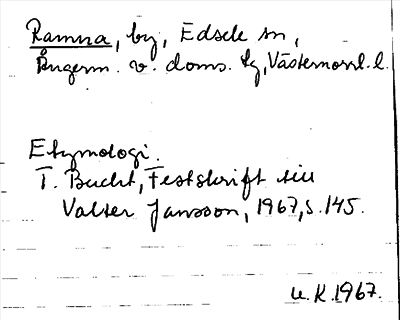 Ramna, by, Edsele sn,
Ångerm. v doms. lg, Västernorrl. l.
Etymologi.
T. Bucht, Festskrift till
Valter Jansson, 1967, s. 145.
U.K. 1967.